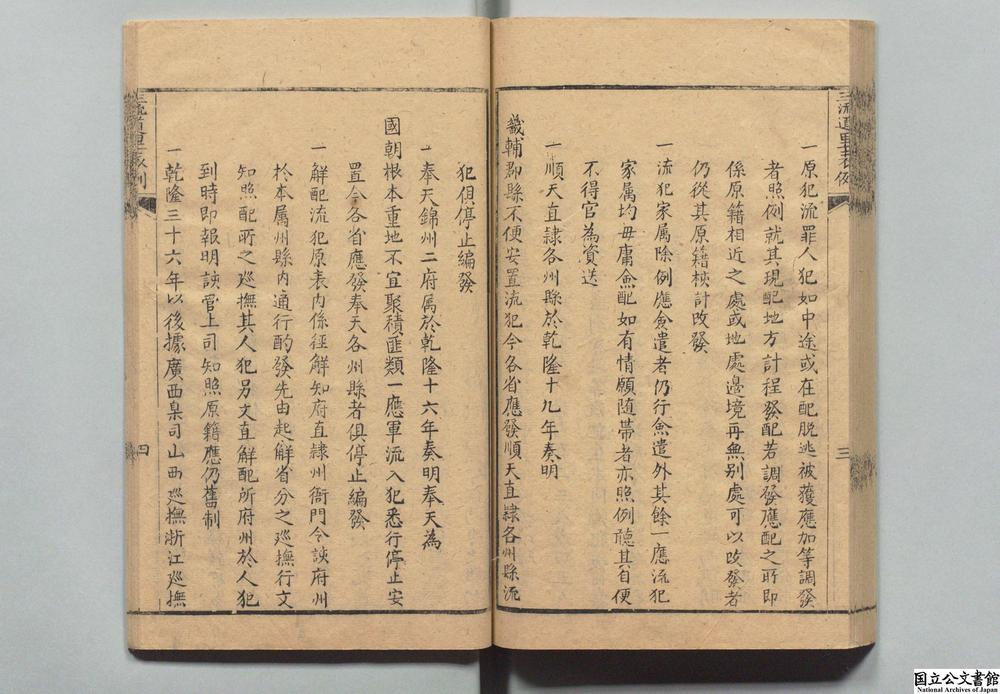 三流道里表例
三
一原犯流罪人犯如中途或在配脱逃被獲應加等調發
者照例就其現配地方計程發配若調發應配之所即
係原籍相近之處或地處邊境再無別處可以改發者
仍從其原籍核計改發
一流犯家属除例應僉遣者仍行僉遣外其餘一應流犯
家属均毋庸僉配如有情願随帯者亦照例聽其自便
不得官為資送
一順天直隷各州縣於乾隆十九年奏明
畿輔郡縣不便安置流犯今各省應發順天直隷各州縣流
犯俱停止編發
一奉天錦州二府属於乾隆十六年奏明奉天為
國朝根本重地不宜聚積匪類一應軍流人犯悉行停止安
置令各省應發奉天各州縣者俱停止編發
一解配流犯原表内係徑解知府直隷州衙門令該府州
於本属州縣内通行酌發先由起解省分之巡撫行文
知照配所之巡撫其人犯另文直解配所府州於人犯
到時即報明該管上司知照原籍應仍舊制
一乾隆三十六年以後據廣西臬司山西巡撫浙江巡撫
四
国立公文書館
National Archives of Japan